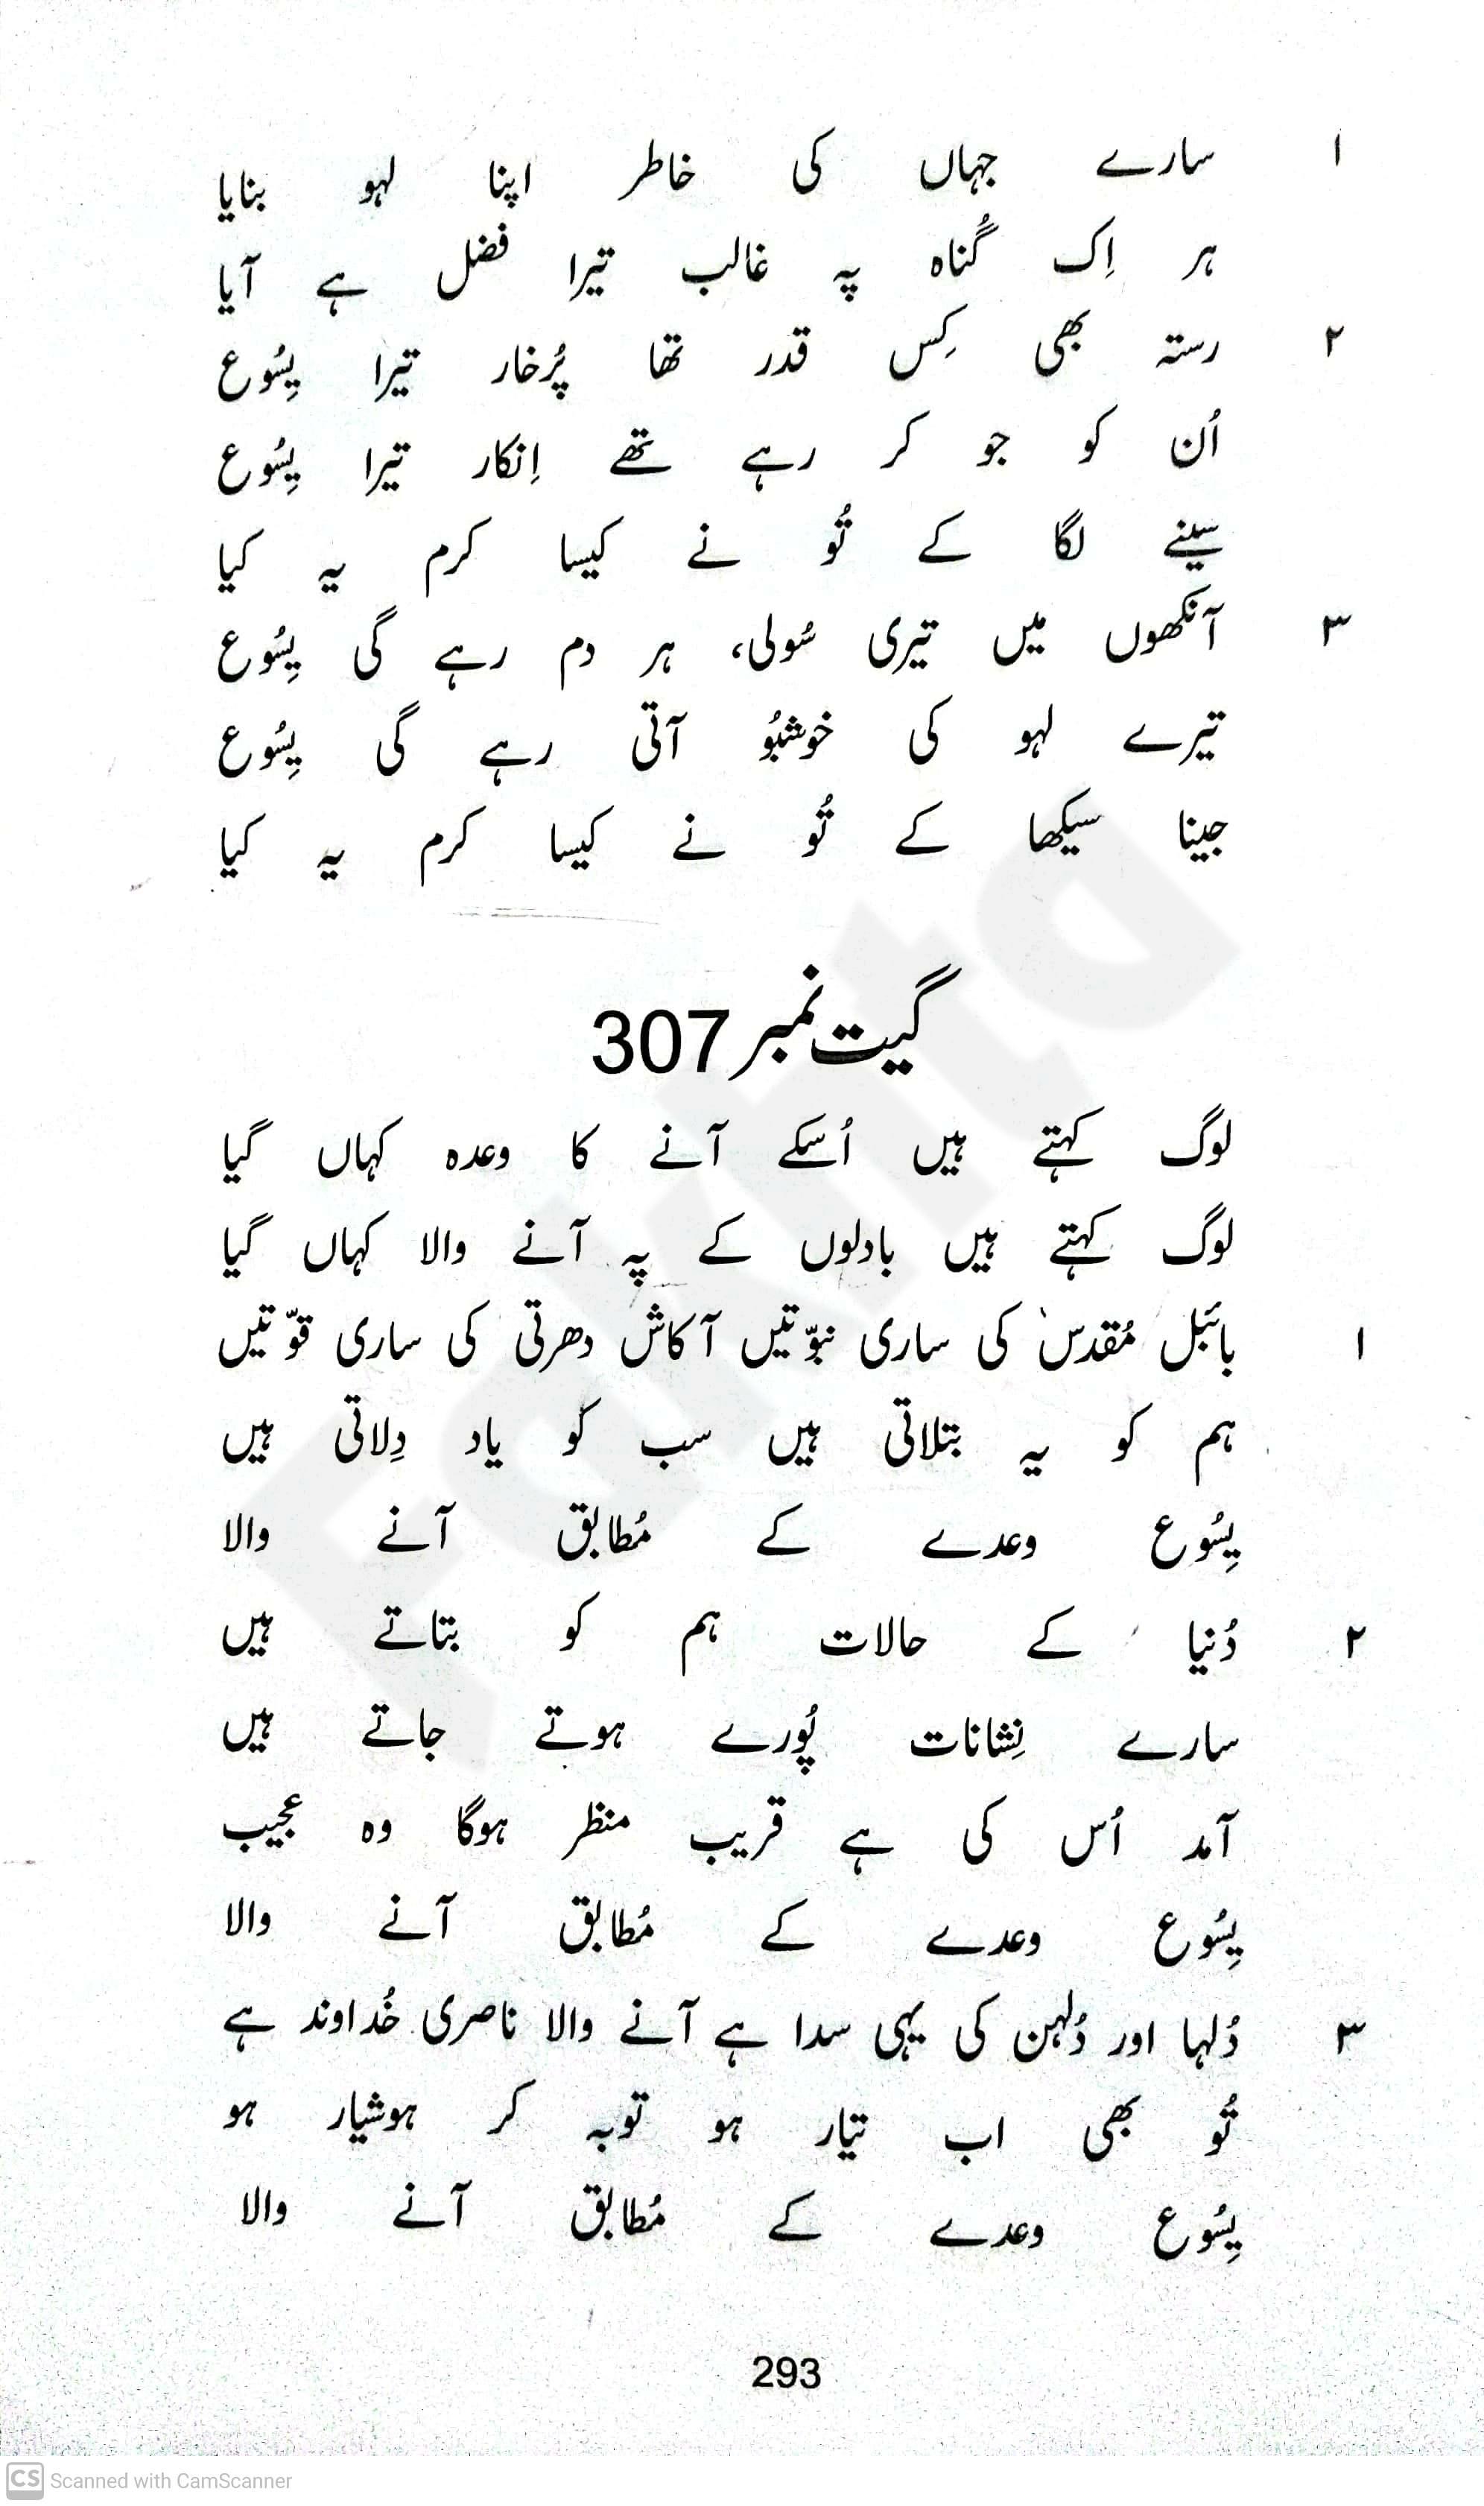 ۱ سارے جہاں کی خاطر اپنا لہو بنایا
ہر اِک گُناہ پہ غالب تیرا فضل ہے آیا
۲ رستہ بھی کِس قدر تھا پُرخار تیرا یِسُوع
اُن کو جو کر رہے تھے اِنکار تیرا یِسُوع
سینے لگا کے تُو نے کیسا کرم یہ کیا
۳ آنکھوں میں تیری سُولی، ہر دم رہے گی یِسُوع
تیرے لہو کی خوشبُو آتی رہے گی یِسُوع
جینا سیکھا کے تُو نے کیسا کرم یہ کیا
گیت نمبر 307
لوگ کہتے ہیں اُسکے آنے کا وعدہ کہاں گیا
لوگ کہتے ہیں بادلوں کے پہ آنے والا کہاں گیا
۱ بائبل مُقدس کی ساری نبوّتیں آکاش دھرتی کی ساری قوّتیں
ہم کو یہ بتلاتی ہیں سب کو یاد دِلاتی ہیں
یِسُوع وعدے کے مُطابق آنے والا
۲ دُنیا کے حالات ہم کو بتاتے ہیں
سارے نِشانات پُورے ہوتے جاتے ہیں
آمد اُس کی ہے قریب منظر ہوگا وہ عجیب
یِسُوع وعدے کے مُطابق آنے والا
۳ دُلہا اور دُلہن کی یہی سدا ہے آنے والا ناصری خُداوند ہے
تُو بھی اب تیار ہو توبہ کر ہوشیار ہو
یِسُوع وعدے کے مُطابق آنے والا
293
CS Scanned with CamScanner
Fakhta